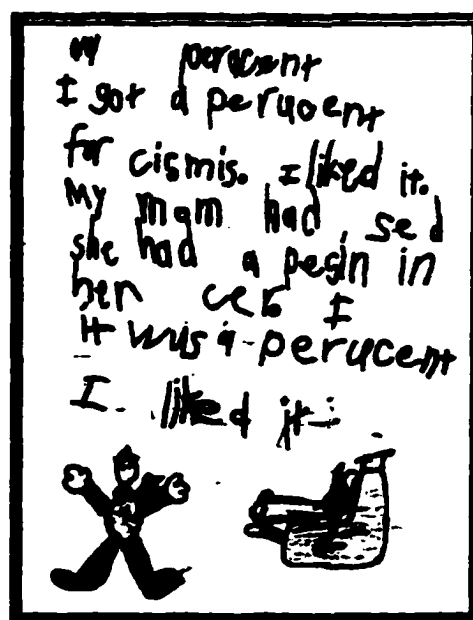 My perucent
I got a perucent
for cismis. I liked it.
My mom had sed
she had a pesin in
her cer. I
It wus a perucent
I liked it.